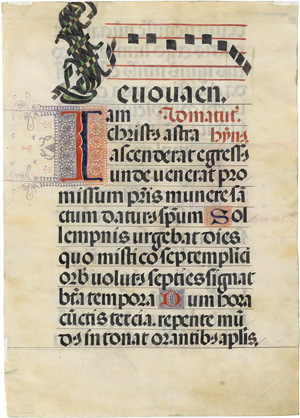 euouaen.
Iam Ad matut'.
christus astra hyns.
ascenderat egressus
unde venerat pro
missum pris munere sa
ctum daturus spum Sol
lempnis urgebat dies
quo mistico septemplici
orbe volutus septies signat
bta tempora Dum hora
cunctis tercia. repente mu
dus intonat orantibus aplis.